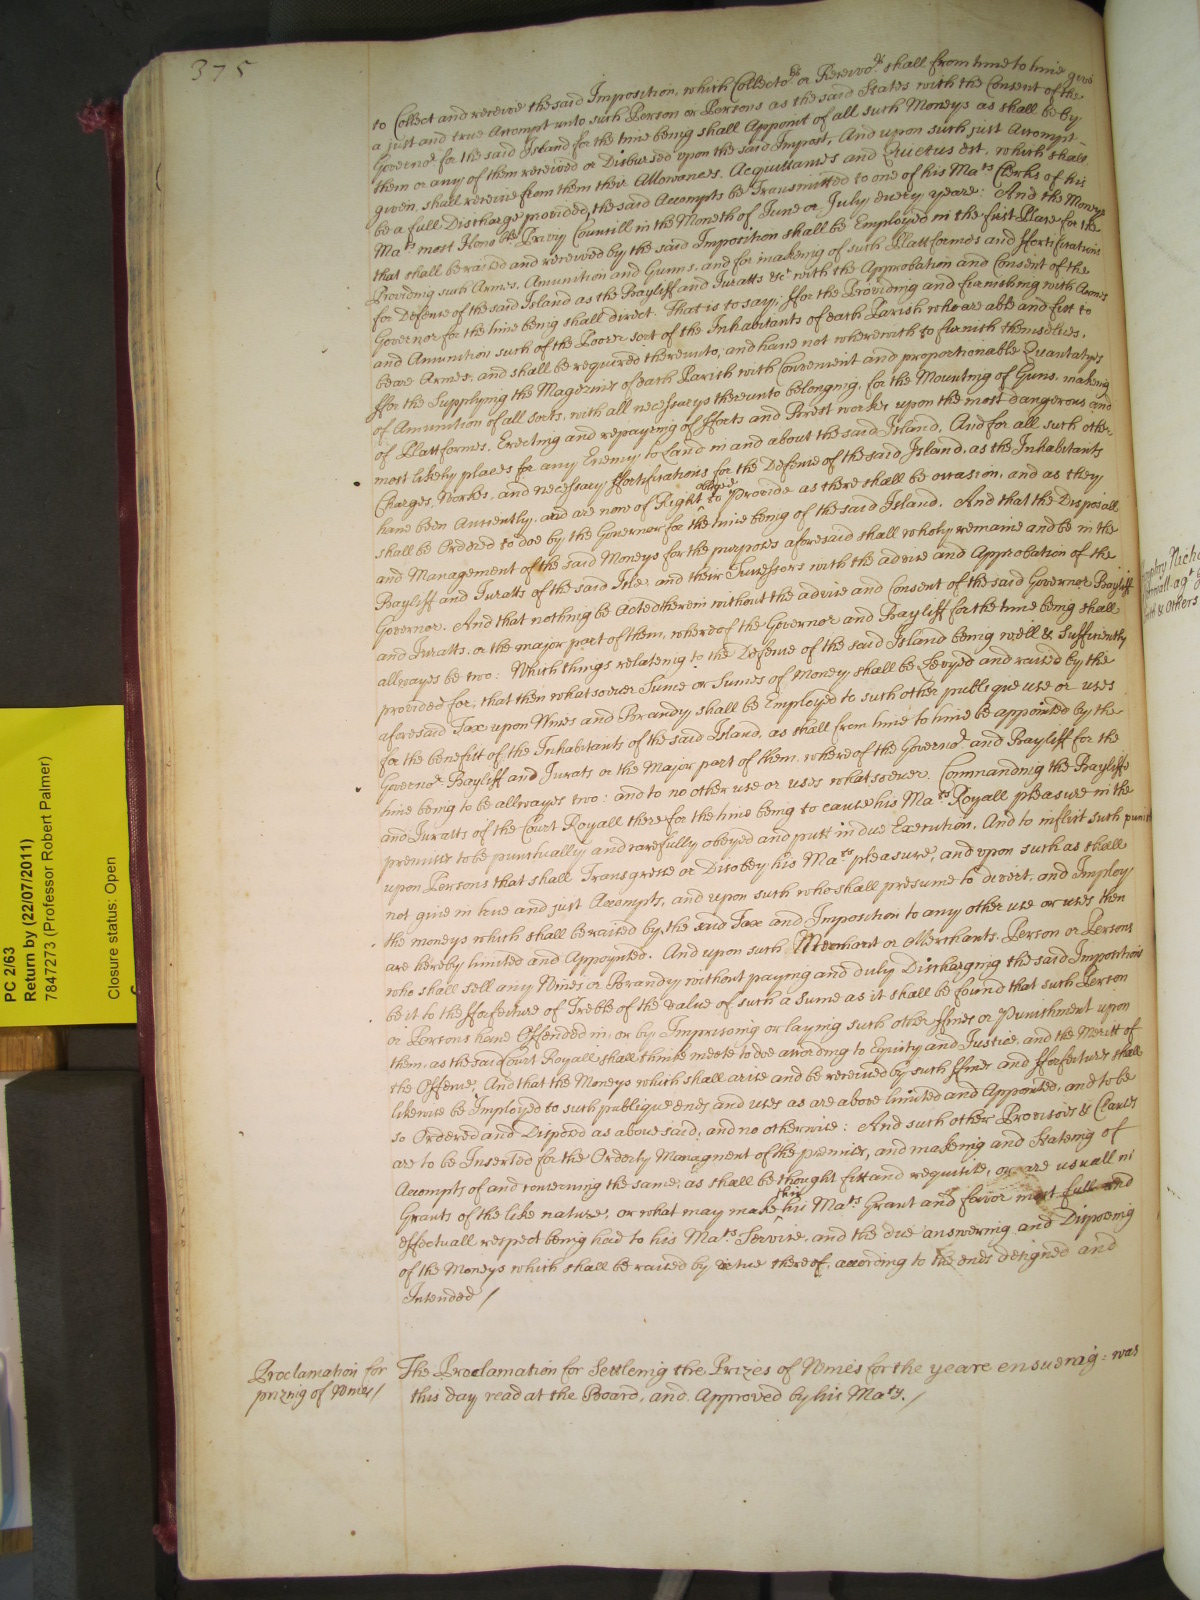 375
to Collect and receive the said Imposition, which Collecto.rs or Receivo.rs shall from time to time give
a just and true Accompt unto such Person or Persons as the said States with the Consent of the
Governor for the said Island for the time being shall Appoint of all such Moneys as shall be by
them or any of them received or Disbursed upon the said Impost, And upon such just Accompt
given, shall receive from them their Allowances, Acquittances and Quietus est, which shall
be a full Discharge provided, the said Accompts be Transmitted to one of his Ma.ts Clerks of his
Ma.ts most Hono.ble Privy Councill in the Moneth of June or July every yeare: And the Moneys
that shall be raised and received by the said Imposition shall be Employed in the first Place for the
Providing such Armes, Amunition and Gunns, and for makeing of such Plattformes and ffortifications
for Defence of the said Island as the Bayliff and Juratts &c with the Approbation and Consent of the
Governor for the time being shall direct. That is to say; ffor the Providing and furnishing with Armes
and Amunition such of the Poorer sort of the Inhabitants of each Parish who are able and fitt to
beare Armes, and shall be required thereunto, and have not wherewith to furnish themselves.
ffor the Supplying the Magezines of each Parish with Convenient and proportionable Quantatyes
of Amunition of all sorts, with all necessarys thereunto belonging, for the Mounting of Guns, making
of Plattformes, Erecting and repayring of fforts and Brest workes upon the most dangerous and
most likely places for any Enemy to Land in and about the said Island, And for all such other
Charges, Workes, and necessary ffortifications for the Defence of the said Island, as the Inhabitants
have been Anciently, and are now of Right obliged to Provide as there shall be occasion, and as they
shall be Ordered to doe by the Governor for the time being of the said Island. And that the Disposall
and Management of the said Moneys for the purposes aforesaid shall wholy remaine and be in the
Bayliff and Juratts of the said Isle, and their Successors with the advice and Approbation of the
Governor. And that nothing be Acted therein without the advice and Consent of the said Governor Bayliff
and Juratts, or the major part of them, whereof the Governor and Bayliff for the time being shall
allwayes be two: Which things relateing to the Defence of the said Island being well & Sufficiently
provided for, that then whatsoever Sume or Sumes of Money shall be Levyed and raised by the
aforesaid Tax upon Wines and Brandy shall be Employed to such other publique use or uses
for the benefitt of the Inhabitants of the said Island, as shall from time to time be appointed by the
Governor Bayliff and Jurats or the Major part of them, whereof the Governor and Bayliff for the
time being to be allwayes two: and to no other use or uses whatsoever. Commanding the Bayliffe
and Juratts of the Court Royall there for the time being to cause his Ma.ts Royall pleasure in the
premises to be punctually and carefully obeyed and putt in due Execution, And to inflict such punis
upon Persons that shall Transgresse or Disobey his Ma.ts pleasure, and upon such as shall
not give in true and just Accompts, and upon such who shall presume to divert, and Imploy
the moneys which shall be raised by the said Tax and Imposition to any other use or uses then
are hereby limited and Appoynted. And upon such Merchant or Merchants, Person or Persons
who shall sell any Wines or Brandy without paying and duly Discharging the said Impositions
be it to the fforfecture of Treble of the value of such a Sume as it shall be found that such Person
or Persons have Offended in, or by Imprisoning or laying such other ffines or Punishment upon
them, as the said Court Royall shall thinke meete to doe according to Equity and Justice, and the Meritt of
the Offence, And that the Moneys which shall arise and be received by such ffines and fforfectures shall
likewise be Imployed to such publique ends and uses as are above limited and Appointed, and to be
so Ordered and Disposed as abovesaid, and no otherwise: And such other Provisoes & Clauses
are to be Inserted for the Orderly Managment of the premises, and makeing and Stateing of
Accompts of and concerning the same, as shall be thought fitt and requisite, or are usuall in
Grants of the like nature, or what may make this his Ma.ts Grant and favor most full and
effectuall respect being had to his Ma.ts Service, and the due answering and Disposeing
of the Moneys which shall be raised by vertue thereof, according to the ends designed and
Intended /
Proclamation for
prizing of Wines /
The Proclamation for Settleing the Prizes of Wines for the yeare ensueing: was
this day read at the Board, and Approved by his Ma.ty. /
PC 2/63
Return by (22/07/2011)
7847273 (Professor Robert Palmer)
Closure status: Open
& Others